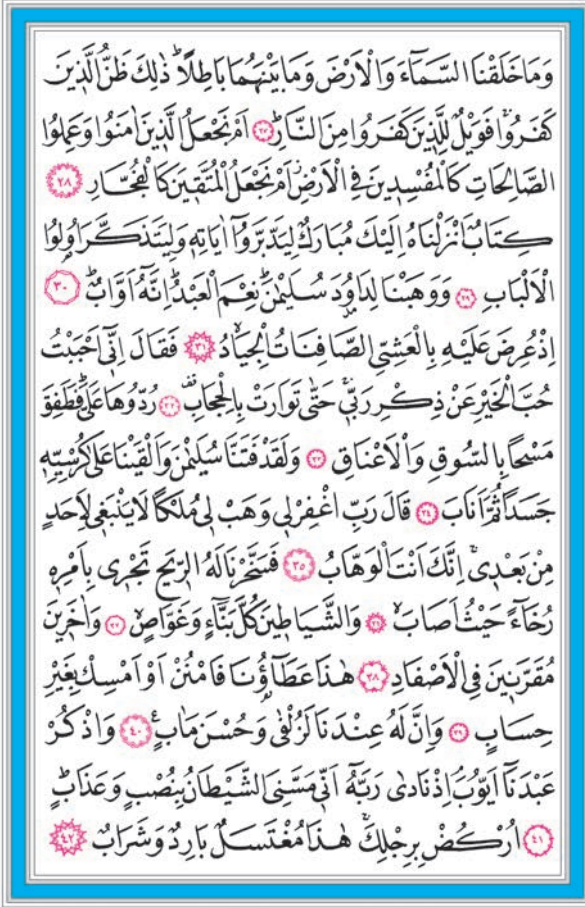 وَمَا خَلَقْنَا السَّمَٓاءَ وَالْاَرْضَ وَمَا بَيْنَهُمَا بَاطِلًاۜ ذٰلِكَ ظَنُّ الَّذ۪ينَ
كَفَرُواۚ فَوَيْلٌ لِلَّذ۪ينَ كَفَرُوا مِنَ النَّارِۜ ﴿٢٧﴾ اَمْ نَجْعَلُ الَّذ۪ينَ اٰمَنُوا وَعَمِلُوا
الصَّالِحَاتِ كَالْمُفْسِد۪ينَ فِي الْاَرْضِۘ اَمْ نَجْعَلُ الْمُتَّق۪ينَ كَالْفُجَّارِ ﴿٢٨﴾
كِتَابٌ اَنْزَلْنَاهُ اِلَيْكَ مُبَارَكٌ لِيَدَّبَّرُٓوا اٰيَاتِه۪ وَلِيَتَذَكَّرَ اُو۬لُوا
الْاَلْبَابِ ﴿٢٩﴾ وَوَهَبْنَا لِدَاوُ۫دَ سُلَيْمٰنَۜ نِعْمَ الْعَبْدُۜ اِنَّهُٓ اَوَّابٌۜ ﴿٣٠﴾
اِذْ عُرِضَ عَلَيْهِ بِالْعَشِيِّ الصَّافِنَاتُ الْجِيَادُۙ ﴿٣١﴾ فَقَالَ اِنّ۪ٓي اَحْبَبْتُ
حُبَّ الْخَيْرِ عَنْ ذِكْرِ رَبّ۪يۚ حَتّٰى تَوَارَتْ بِالْحِجَابِ۠ ﴿٣٢﴾ رُدُّوهَا عَلَيَّۜ فَطَفِقَ
مَسْحًا بِالسُّوقِ وَالْاَعْنَاقِ ﴿٣٣﴾ وَلَقَدْ فَتَنَّا سُلَيْمٰنَ وَاَلْقَيْنَا عَلٰى كُرْسِيِّه۪
جَسَدًا ثُمَّ اَنَابَ ﴿٣٤﴾ قَالَ رَبِّ اغْفِرْ ل۪ي وَهَبْ ل۪ي مُلْكًا لَا يَنْبَغ۪ي لِاَحَدٍ
مِنْ بَعْد۪يۚ اِنَّكَ اَنْتَ الْوَهَّابُ ﴿٣٥﴾ فَسَخَّرْنَا لَهُ الرّ۪يحَ تَجْر۪ي بِاَمْرِه۪
رُخَٓاءً حَيْثُ اَصَابَۙ ﴿٣٦﴾ وَالشَّيَاط۪ينَ كُلَّ بَنَّٓاءٍ وَغَوَّاصٍۙ ﴿٣٧﴾ وَاٰخَر۪ينَ
مُقَرَّن۪ينَ فِي الْاَصْفَادِ ﴿٣٨﴾ هٰذَا عَطَٓاؤُ۬نَا فَامْنُنْ اَوْ اَمْسِكْ بِغَيْرِ
حِسَابٍ ﴿٣٩﴾ وَاِنَّ لَهُ عِنْدَنَا لَزُلْفٰى وَحُسْنَ مَاٰبٍ۟ ﴿٤٠﴾ وَاذْكُرْ
عَبْدَنَٓا اَيُّوبَۢ اِذْ نَادٰى رَبَّهُٓ اَنّ۪ي مَسَّنِيَ الشَّيْطَانُ بِنُصْبٍ وَعَذَابٍۜ
﴿٤١﴾ اُرْكُضْ بِرِجْلِكَۚ هٰذَا مُغْتَسَلٌ بَارِدٌ وَشَرَابٌ ﴿٤٢﴾